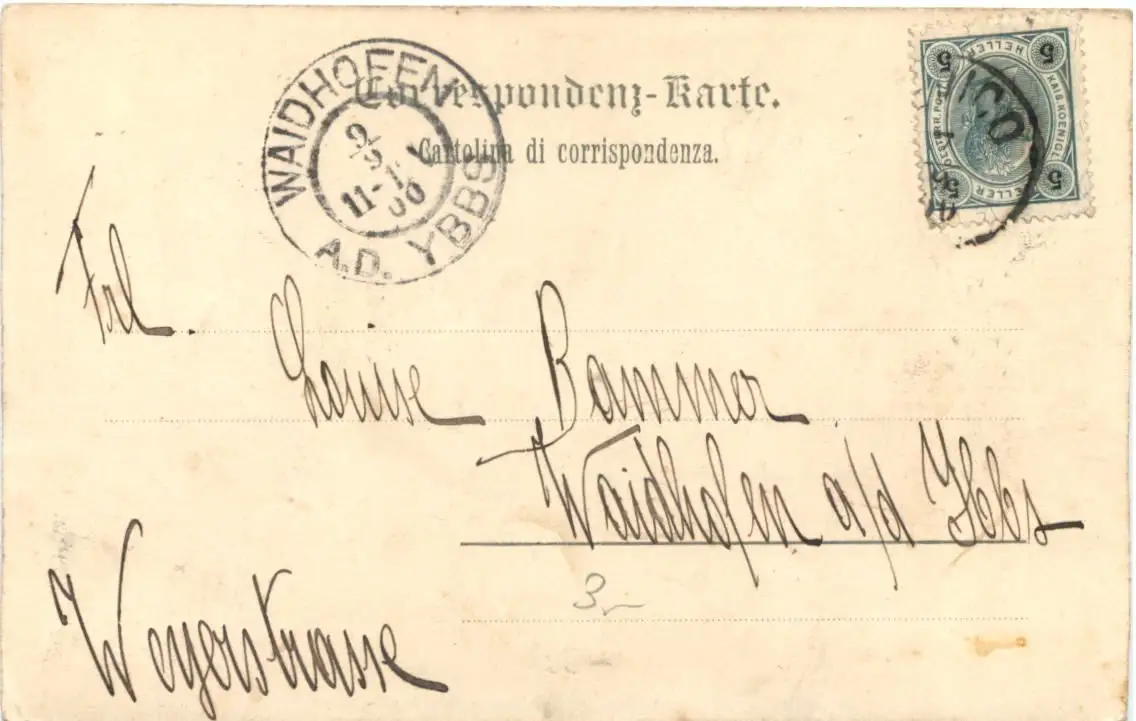 Correspondenz-Karte.
Cartolina di corrispondenza.
WAIDHOFEN
A.D. YBBS
9/9
11-1
00
5 HELLER 5
KAIS. KOENIGL.
OESTERR. POST
5 HELLER 5
ICO
Frl. Louise Bammer
Waidhofen a/d Ybbs
Weyerstrasse
3